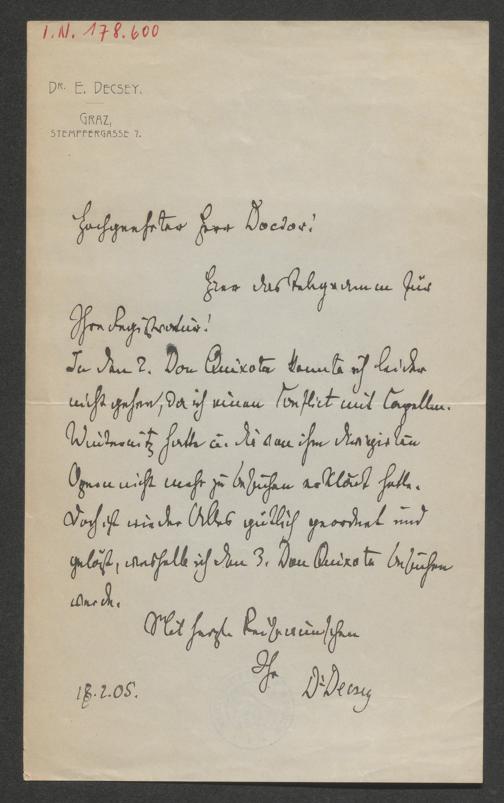 I.N. 178.600
DR. E. DECSEY.
GRAZ,
STEMPFERGASSE 7.
Hochgeehrter Herr Doctor!
Hier das Telegramm für
Ihre Registratur!
In den 2. Don Quixote konnte ich leider
nicht gehen, da ich einen Conflict mit Capellm.
Winternitz hatte u. die von ihm dirigirten
Opern nicht mehr zu besuchen erklärt hatte.
Doch ist wieder Alles gütlich geordnet und
gelöst, weshalb ich den 3. Don Quixote besuchen
werde.
Mit herzl. Reisewünschen
Ihr
Dr Decsey
18.2.05.